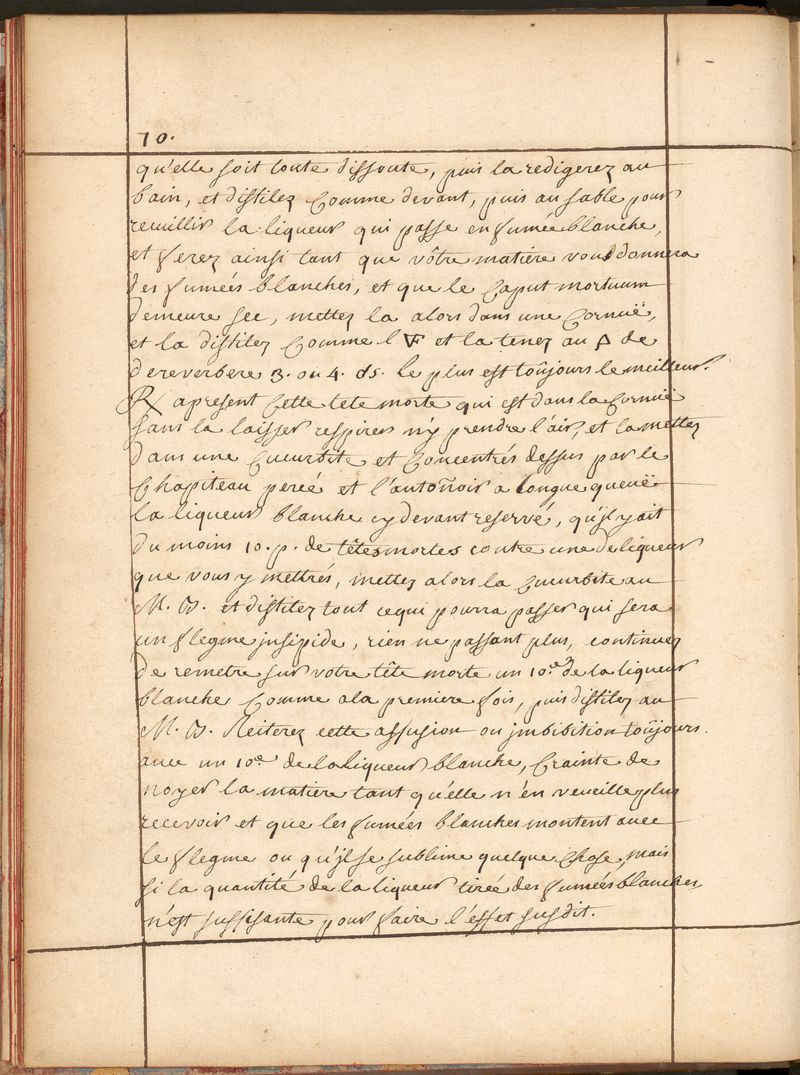 10.
qu'elle soit toute dissoute, puis la redigerez au
bain, et distilez comme devant, puis au sable pour
recuillir la liqueur qui passe en fumée blanche,
et ferez ainsi tant que vôtre matiere vous donnera
des fumées blanches, et que le Caput mortuum
demeure sec, mettez la alors dans une Cornuë,
et la distilez Comme l'🜆 et la tenez au 🜂 de
de reverbere 3. ou 4. ds. le plus est toûjours le meilleur.
℞ apresent Cette tete morte qui est dans la Cornuë
sans la laisser respirer n'y prendre l'air, et la mettez
dans une Cucurbite et Concentrés dessus par le
Chapiteau percé et l'antoñoir a longue queuë
la liqueur blanche cy devant reservé, qu'jl y ait
du moins 10. p. de têtes mortes contre une de liqueur
que vous y mettrés, mettez alors la Cucurbite au
M. B. et distilez tout ce qui pourra passer qui sera
un flegme jnsipide, rien ne passant plus, continuez
de remetre sur votre tête morte un 10.e de la liqueur
blanche Comme a la premiere fois, puis distilez au
M. B. Reiterez cette affusion ou jmbibition toûjours
avec un 10e de la liqueur blanche, Crainte de
noyer la matiere tant qu'elle n'en veueille plus
recevoir et que les fumées blanches montent avec
le flegme ou qu'jl se sublime quelque Chose, mais
si la quantité de la liqueur tirée des fumées blanches
n'est suffisante pour faire l'effet susdit.